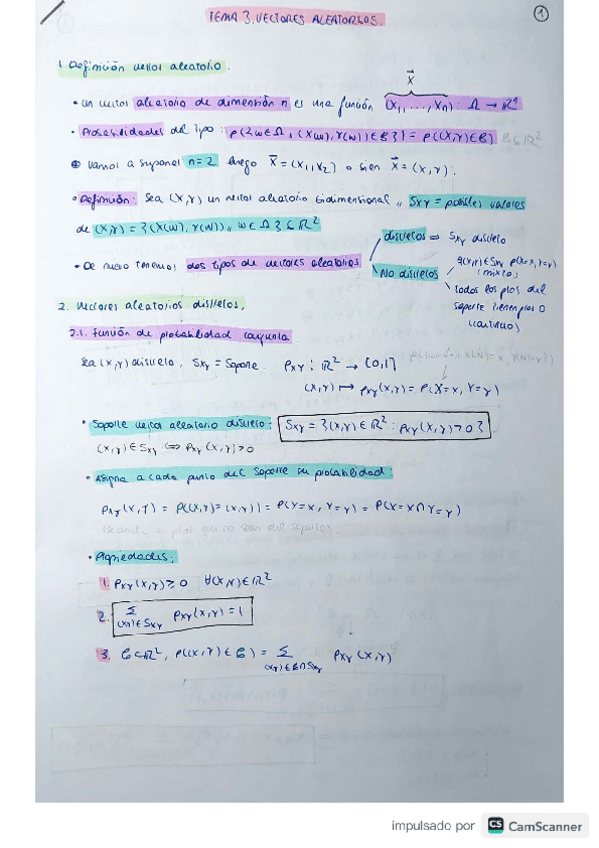 TEMA 3. VECTORES ALEATORIOS.
1
1. Definición vector aleatorio.
• un vector aleatorio de dimensión n es una función (X₁, ..., Xₙ) : Ω → ℝⁿ
X⃗
• Probabilidades del tipo: P({ω∈Ω, (X(ω), Y(ω))∈B}) = P((X,Y)∈B) B⊂ℝ²
Vamos a suponer n=2 luego X⃗ = (X₁, X₂) o bien X⃗ = (X, Y).
• Definición: Sea (X,Y) un vector aleatorio bidimensional, S_XY = posibles valores
de (X,Y) = {(X(ω), Y(ω)), ω∈Ω} ⊂ ℝ²
• De nuevo tenemos dos tipos de vectores aleatorios
discretos ⇒ S_XY discreto
No discretos
∃(x,y)∈S_XY P(X=x, Y=y)
(mixto)
todos los ptos del
soporte tienen prob 0
(continuo)
2. Vectores aleatorios discretos.
2.1. Función de probabilidad conjunta
Sea (X,Y) discreto, S_XY = Soporte. P_XY : ℝ² → [0,1]
(x,y) ↦ P_XY(x,y) = P(X=x, Y=y)
• Soporte vector aleatorio discreto: S_XY = {(x,y)∈ℝ² : P_XY(x,y)>0}
(x,y)∈S_XY ⟺ P_XY(x,y)>0
• Asigna a cada punto del soporte su probabilidad:
P_XY(x,y) = P((X,Y)=(x,y)) = P(X=x, Y=y) = P(X=x ∩ Y=y)
• Propiedades:
1. P_XY(x,y) ≥ 0 ∀(x,y)∈ℝ²
2. Σ_(x,y)∈S_XY P_XY(x,y) = 1
3. B⊂ℝ², P((X,Y)∈B) = Σ_(x,y)∈B∩S_XY P_XY(x,y)
impulsado por CS CamScanner